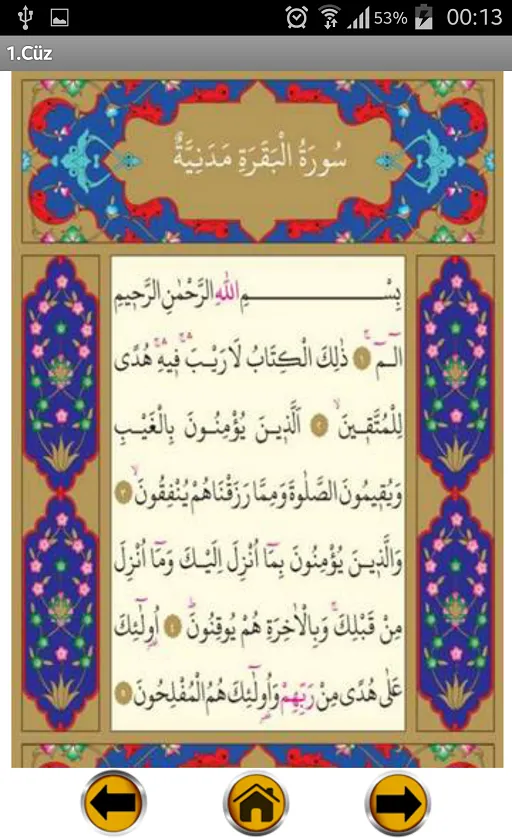 53% 00:13
1.Cüz
سُورَةُ الْبَقَرَةِ مَدَنِيَّةٌ
بِسْمِ اللهِ الرَّحْمٰنِ الرَّحِيمِ
الٓمٓ ۚ ﴿١﴾ ذٰلِكَ الْكِتَابُ لَا رَيْبَ ۛ فِيهِ ۛ هُدًى
لِلْمُتَّقِينَ ۙ ﴿٢﴾ اَلَّذِينَ يُؤْمِنُونَ بِالْغَيْبِ
وَيُقِيمُونَ الصَّلٰوةَ وَمِمَّا رَزَقْنَاهُمْ يُنْفِقُونَ ۙ ﴿٣﴾
وَالَّذِينَ يُؤْمِنُونَ بِمَٓا اُنْزِلَ اِلَيْكَ وَمَٓا اُنْزِلَ
مِنْ قَبْلِكَ ۚ وَبِالْاٰخِرَةِ هُمْ يُوقِنُونَ ۜ ﴿٤﴾ اُو۬لٰٓئِكَ
عَلٰى هُدًى مِنْ رَبِّهِمْ وَاُو۬لٰٓئِكَ هُمُ الْمُفْلِحُونَ ﴿٥﴾